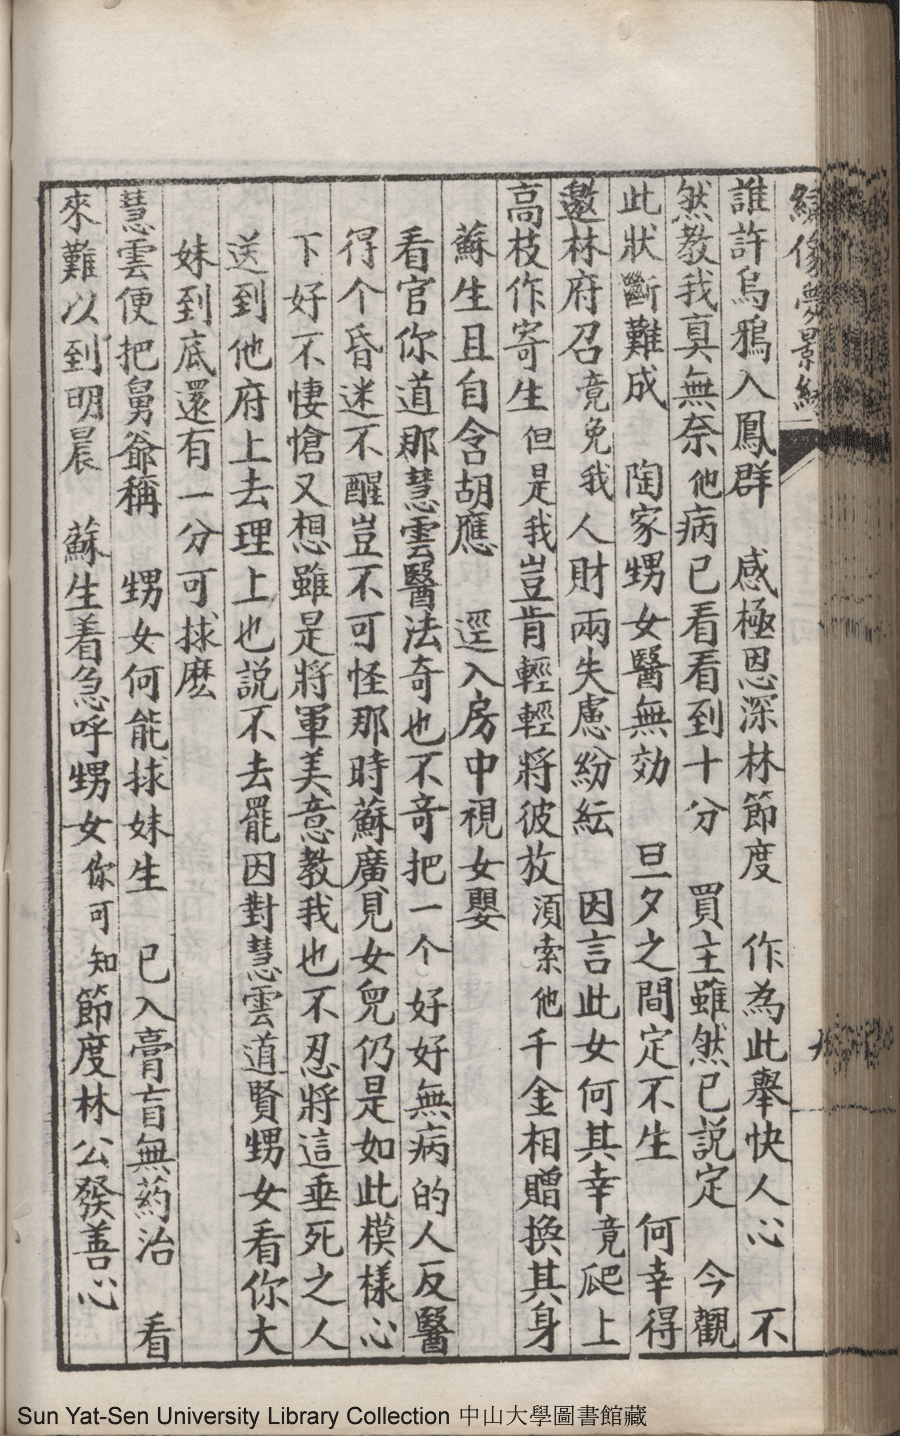 繡像夢影緣
誰許烏鴉入鳳群　感極恩深林節度　作為此舉快人心　不
然教我真無奈他病已看看到十分　買主雖然已説定　今觀
此狀斷難成　陶家甥女醫無効　旦夕之間定不生　何幸得
邀林府召竟免我人財兩失慮紛紜　因言此女何其幸竟爬上
高枝作寄生但是我豈肯輕輕將彼放須索他千金相贈換其身
蘇生且自含胡應　逕入房中視女嬰
看官你道那慧雲醫法奇也不奇把一个好好無病的人反醫
得个昏迷不醒豈不可怪那時蘇廣見女兒仍是如此模樣心
下好不悽愴又想雖是將軍美意教我也不忍將這垂死之人
送到他府上去理上也説不去罷因對慧雲道賢甥女看你大
妹到底還有一分可捄麽
慧雲便把舅爺稱　甥女何能捄妹生　已入膏肓無葯治　看
來難以到明晨　蘇生着急呼甥女你可知節度林公發善心
Sun Yat-Sen University Library Collection 中山大學圖書館藏